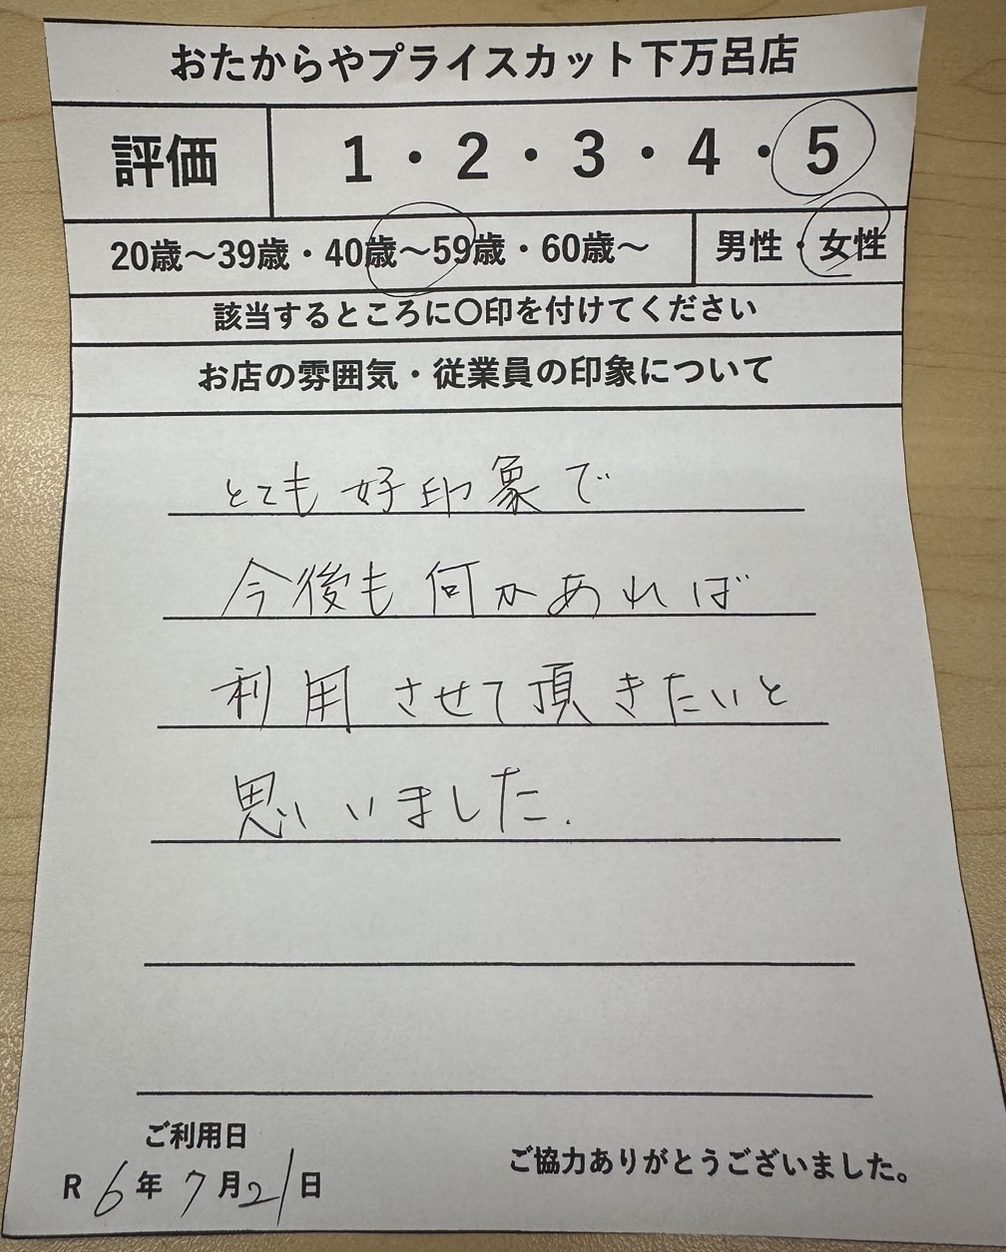 おたからやプライスカット下万呂店
評価 1・2・3・4・5
20歳〜39歳・40歳〜59歳・60歳〜 男性・女性
該当するところに〇印を付けてください
お店の雰囲気・従業員の印象について
とても好印象で
今後も何かあれば
利用させて頂きたいと
思いいました.
ご利用日
R 6年 7月21日
ご協力ありがとうございました。